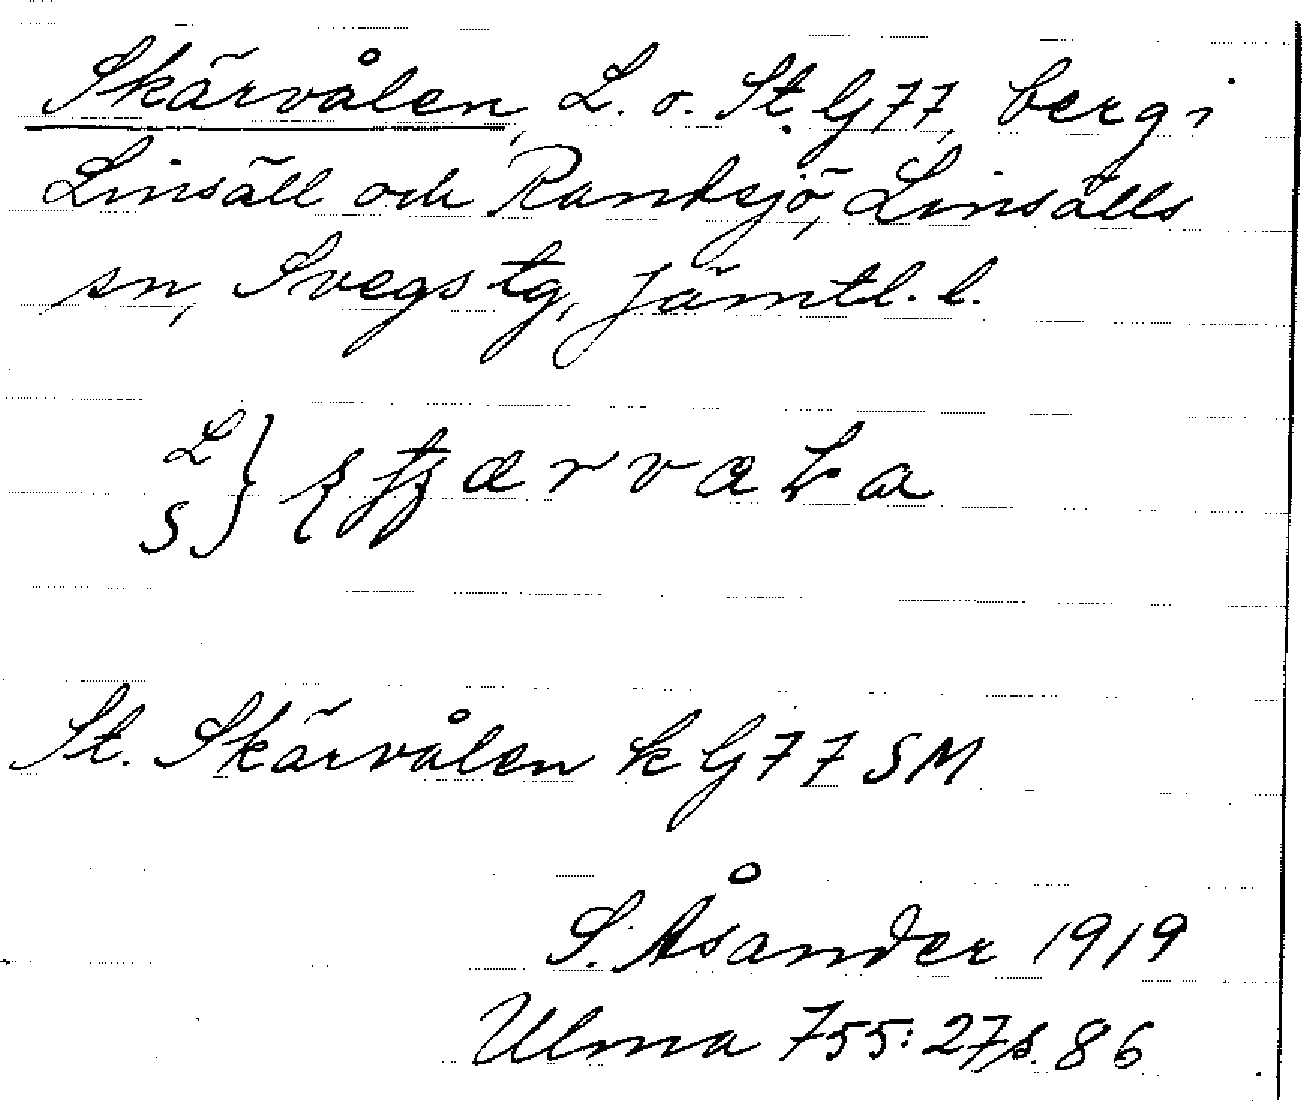 Skärvålen, L. o. St. G77, berg i
Linsäll och Randsjö, Linsälls
sn, Svegs tg, Jämtl. l.
L
S
St. Skärvålen k G77 SM
S. Åsander 1919
Ulma 755:27 s. 86